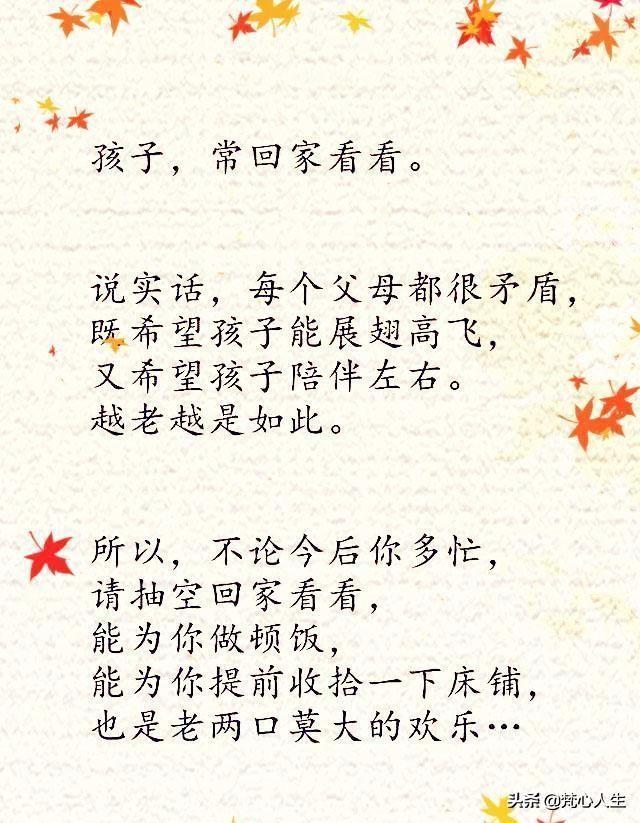 孩子，常回家看看。
说实话，每个父母都很矛盾，
既希望孩子能展翅高飞，
又希望孩子陪伴左右。
越老越是如此。
所以，不论今后你多忙，
请抽空回家看看，
能为你做顿饭，
能为你提前收拾一下床铺，
也是老两口莫大的欢乐…
头条 @梵心人生